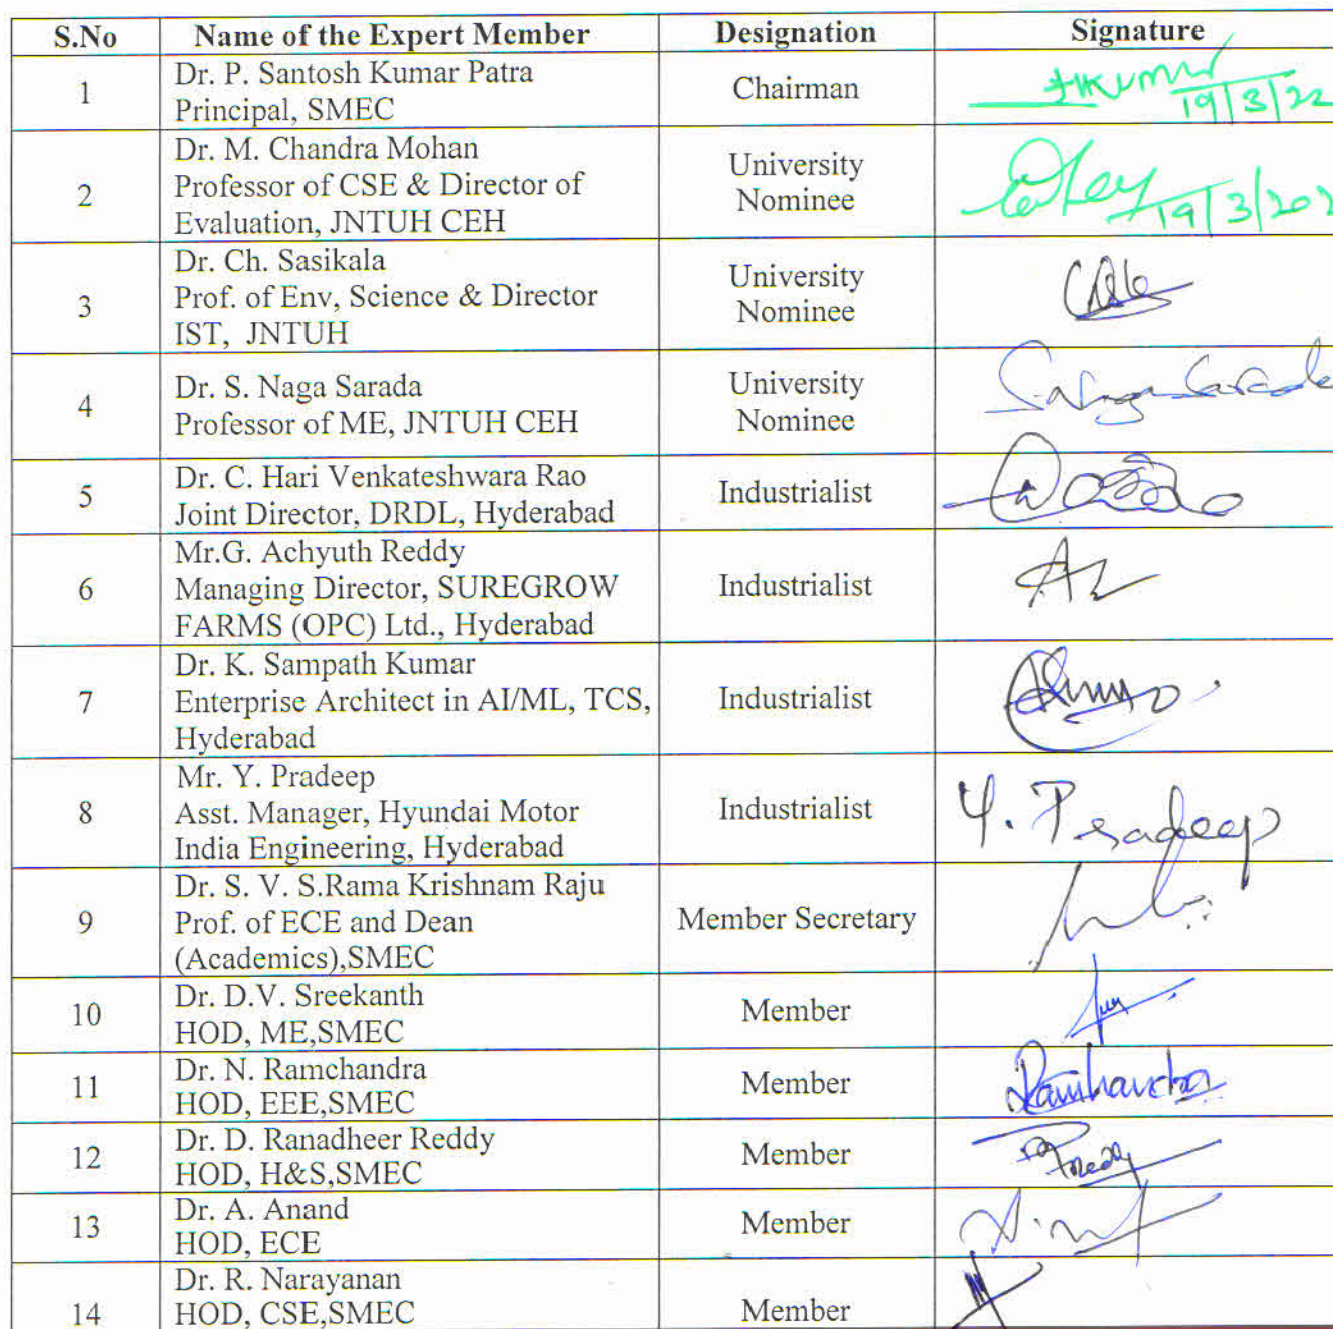 S.No Name of the Expert Member Designation Signature
1 Dr. P. Santosh Kumar Patra
Principal, SMEC Chairman 19/3/22
2 Dr. M. Chandra Mohan
Professor of CSE & Director of
Evaluation, JNTUH CEH University
Nominee 19/3/202
3 Dr. Ch. Sasikala
Prof. of Env, Science & Director
IST, JNTUH University
Nominee
4 Dr. S. Naga Sarada
Professor of ME, JNTUH CEH University
Nominee S. Naga Sarada
5 Dr. C. Hari Venkateshwara Rao
Joint Director, DRDL, Hyderabad Industrialist
6 Mr.G. Achyuth Reddy
Managing Director, SUREGROW
FARMS (OPC) Ltd., Hyderabad Industrialist
7 Dr. K. Sampath Kumar
Enterprise Architect in AI/ML, TCS,
Hyderabad Industrialist
8 Mr. Y. Pradeep
Asst. Manager, Hyundai Motor
India Engineering, Hyderabad Industrialist Y. Pradeep
9 Dr. S. V. S.Rama Krishnam Raju
Prof. of ECE and Dean
(Academics),SMEC Member Secretary
10 Dr. D.V. Sreekanth
HOD, ME,SMEC Member
11 Dr. N. Ramchandra
HOD, EEE,SMEC Member
12 Dr. D. Ranadheer Reddy
HOD, H&S,SMEC Member
13 Dr. A. Anand
HOD, ECE Member
14 Dr. R. Narayanan
HOD, CSE,SMEC Member